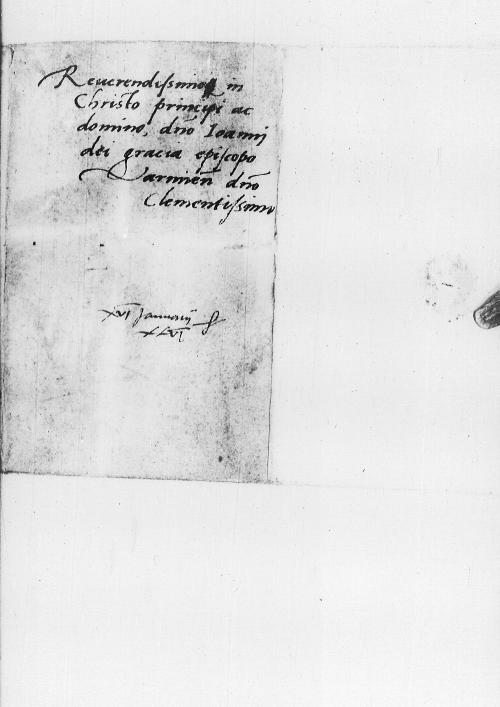 Reuerendissimo in
Christo principi ac
domino, dno Ioanni
dei gracia episcopo
Varmien dno
Clementissimo
XVI Januarij
XXVI